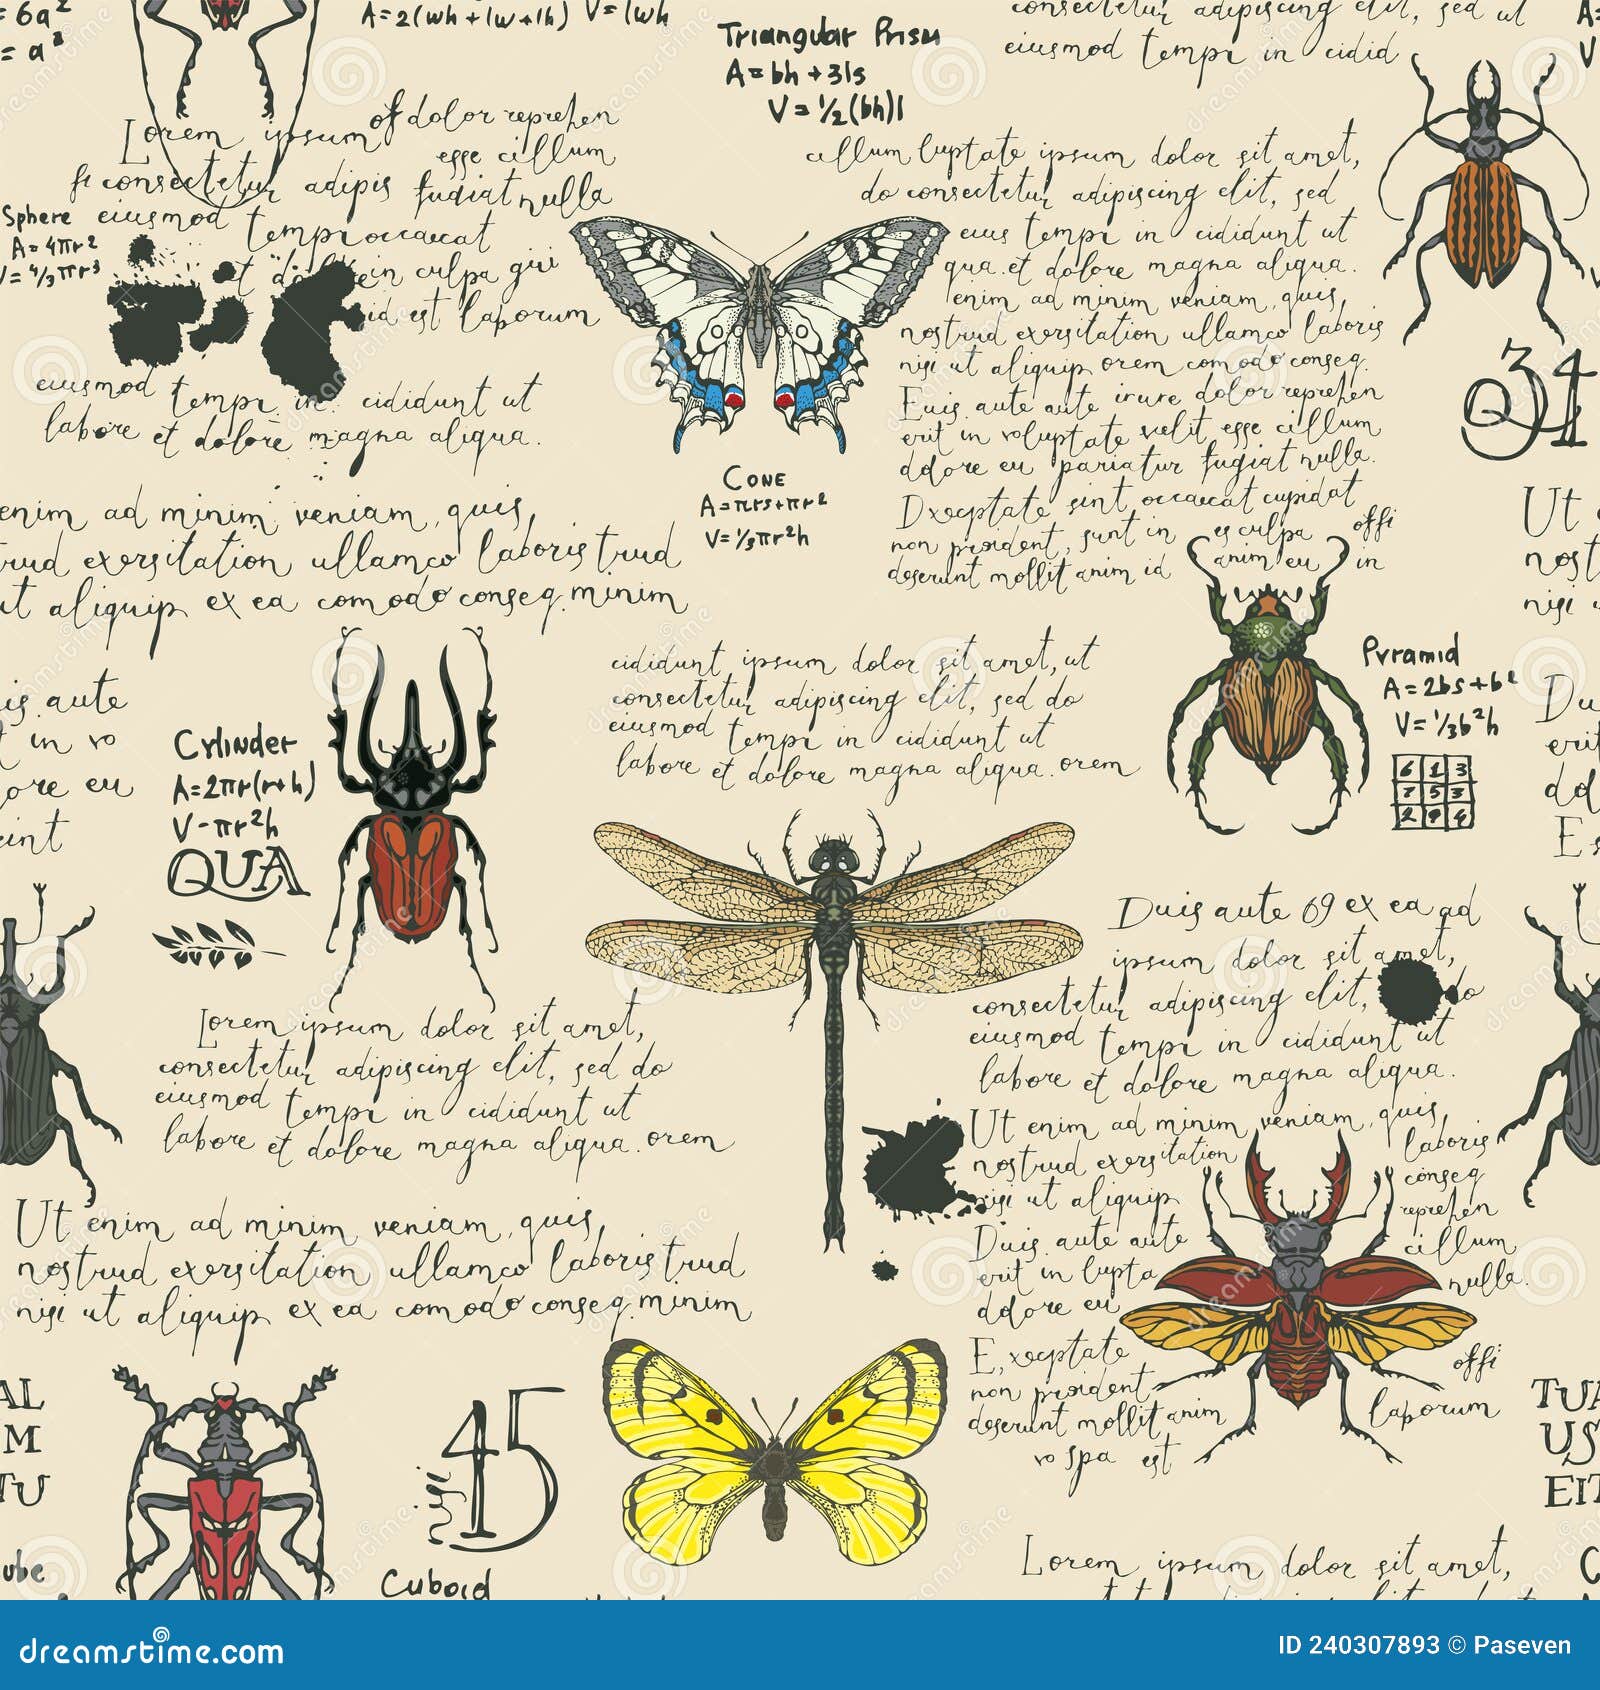 = 6a²
= a²
A=2(wh+lw+lh) V=lwh
Triangular Prism
A=bh+3ls
V=½(bh)l
consectetur adipiscing elit, sed ut
eiusmod tempr in cidid
Lorem ipsum of dolor reprehen
esse cillum
consectetur adipis fugiat nulla
Sphere eiusmod tempr occaecat
A=4πr²
V=4/3πr³
in culpa qui
id est laporum
eiusmod tempr in cididunt ut
labore et dolore magna aliqua.
cillum luptate ipsum dolor sit amet,
do consectetur adipiscing elit, sed
eius tempr in cididunt ut
qua et dolore magna aliqua.
enim ad minim veniam, quis,
nostrud exersitation ullamco laboris
nisi ut aliquip orem comodo conseq.
Euis aute aute irure dolor reprehen
erit in voluptate voelit esse cillum
dolore eu pariatur fugiat nulla.
Dxceptate sint occaecat cupidat
non proident, sunt in es culpa offi
deserunt mollit anim id anim eu in
34
Cone
A=πrs+πr²
V=⅓πr²h
enim ad minim veniam, quis,
trud exersitation ullamco laboris trud
ut aliquip ex ea comodo conseq minim
Ut
nost
nisi
cididunt ipsum dolor sit amet, ut
consectetur adipiscing elit, sed do
eiusmod tempr in cididunt ut
labore et dolore magna aliqua. orem
Pyramid
A=2bs+b²
V=⅓b²h
6 1 3
7 5 3
is aute
t in vo
ore eu
eint
Cylinder
A=2πr(r+h)
V-πr²h
QUA
Du
erit
dol
Duis aute 69 ex ea ad
ipsum dolor sit amet,
consectetur adipiscing elit, do
eiusmod tempr in cididunt ut
labore et dolore magna aliqua.
Lorem ipsum dolor sit amet,
consectetur adipiscing elit, sed do
eiusmod tempr in cididunt ut
labore et dolore magna aliqua. orem
Ut enim ad minim veniam, quis,
nostrud exersitation laboris
nisi ut aliquip conseq
Duis aute aute reprehen
erit in lupta cillum
dolore eu nulla.
E, xceptate offi
non proident,
deserunt mollit anim laporum
vo spa est
Ut enim ad minim veniam, quis,
nostrud exersitation ullamco laboris trud
nisi ut aliquip ex ea comodo conseq minim
AL
M
TU
45
Cuboid
ube
TUA
US
EIT
Lorem ipsum dolor sit amet,
dreamstime.com
ID 240307893 © Paseven